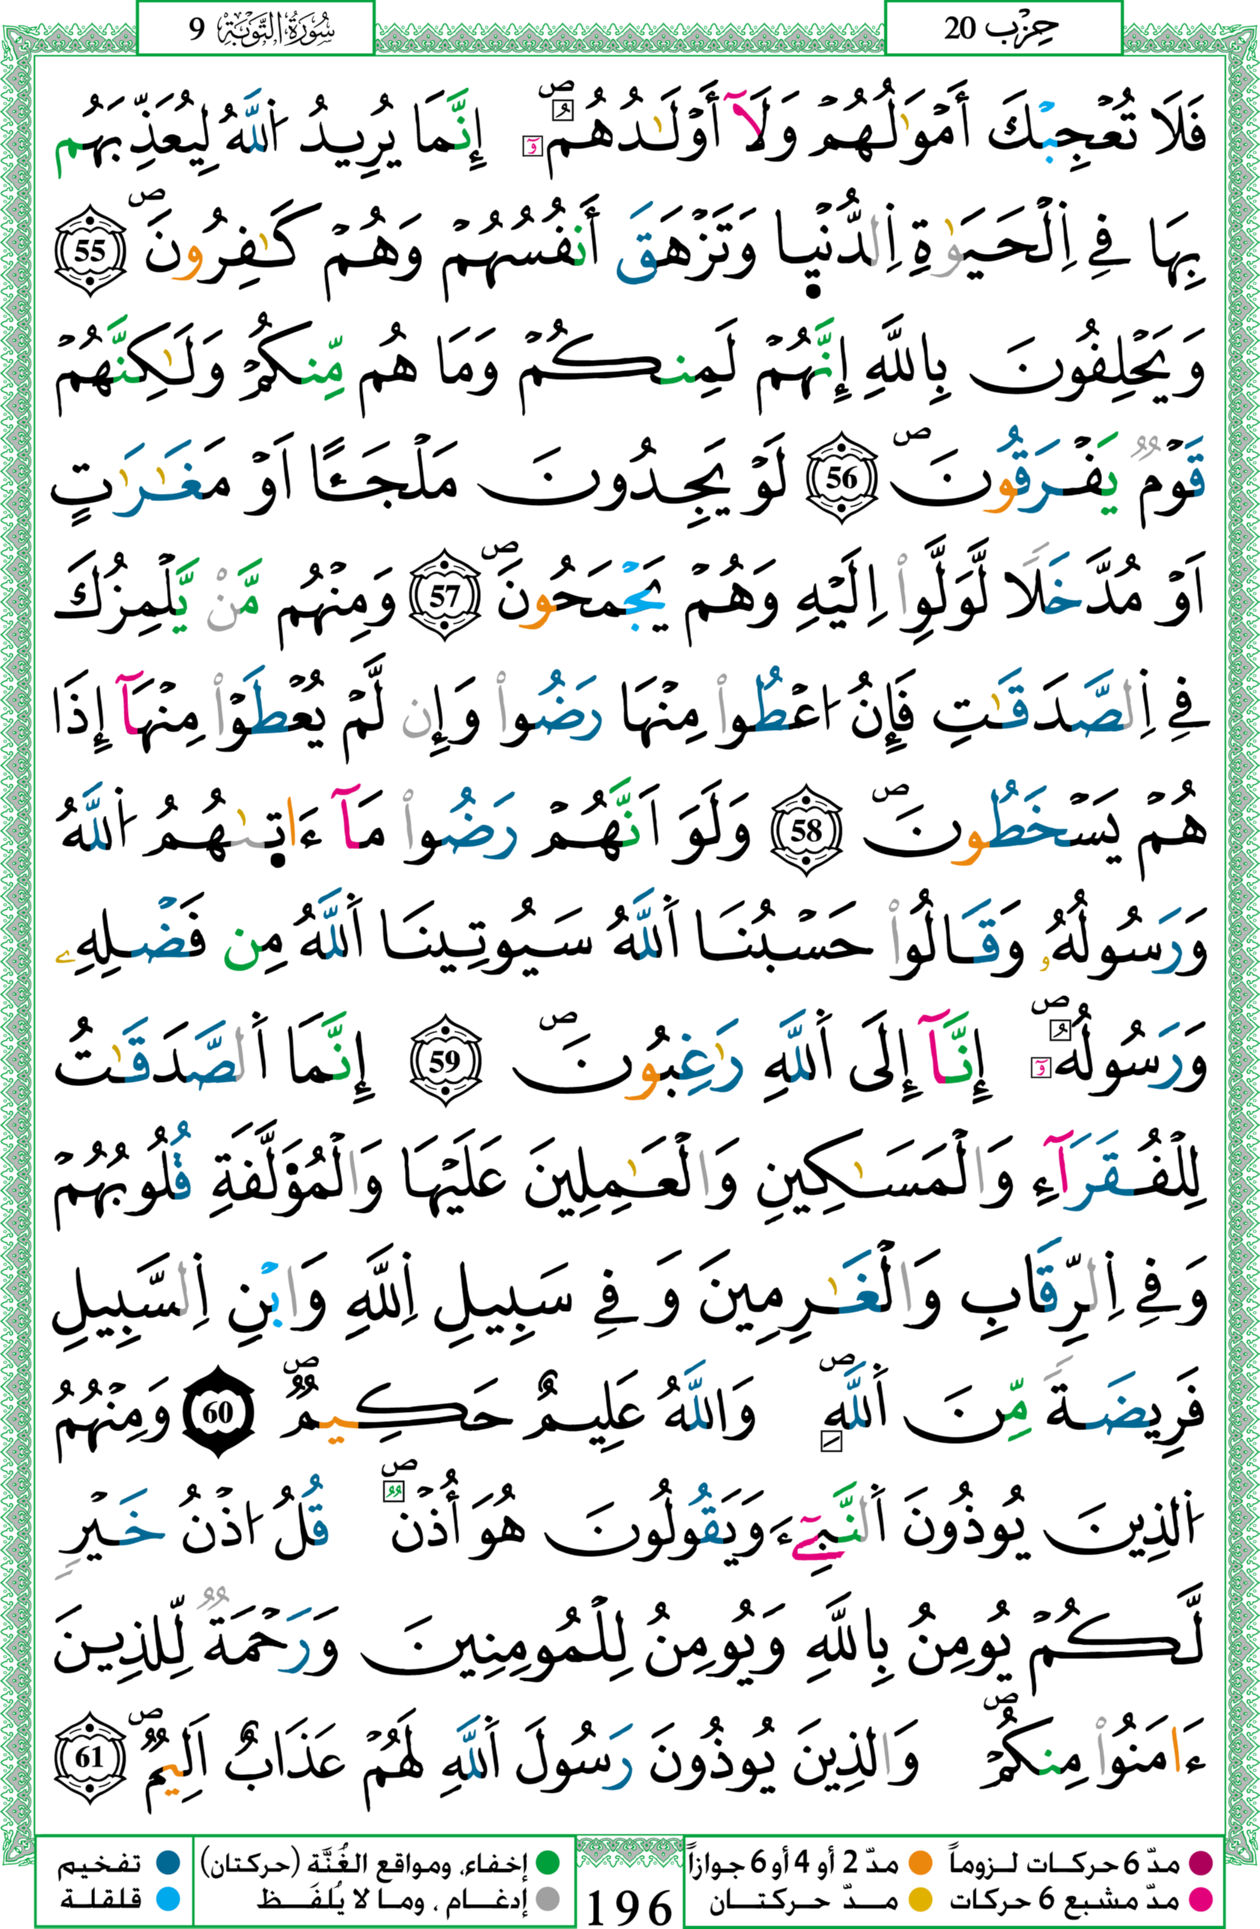 حِزْب 20
سُورَةُ التَّوْبَة 9
فَلَا تُعْجِبْكَ أَمْوَٰلُهُمْ وَلَآ أَوْلَٰدُهُمُۥٓ إِنَّمَا يُرِيدُ اُ۬للَّهُ لِيُعَذِّبَهُم
بِهَا فِے اِ۬لْحَيَوٰةِ اِ۬لدُّنْي۪ا وَتَزْهَقَ أَنفُسُهُمْ وَهُمْ كَٰفِرُونَۖ 55
وَيَحْلِفُونَ بِاللَّهِ إِنَّهُمْ لَمِنكُمْ وَمَا هُم مِّنكُمْ وَلَٰكِنَّهُمْ
قَوْمٞ يَفْرَقُونَۖ 56 لَوْ يَجِدُونَ مَلْجَـًٔا اَوْ مَغَٰرَٰتٍ
اَوْ مُدَّخَلٗا لَّوَلَّوِاْ اِلَيْهِ وَهُمْ يَجْمَحُونَۖ 57 وَمِنْهُم مَّنْ يَّلْمِزُكَ
فِے اِ۬لصَّدَقَٰتِ فَإِنُ ا۟عْطُواْ مِنْهَا رَضُواْ وَإِن لَّمْ يُعْطَوْاْ مِنْهَآ إِذَا
هُمْ يَسْخَطُونَۖ 58 وَلَوَ اَنَّهُمْ رَضُواْ مَآ ءَات۪ىٰهُمُ اُ۬للَّهُ
وَرَسُولُهُۥ وَقَالُواْ حَسْبُنَا اَ۬للَّهُ سَيُوتِينَا اَ۬للَّهُ مِن فَضْلِهِۦ
وَرَسُولُهُۥٓۖ إِنَّآ إِلَى اَ۬للَّهِ رَٰغِبُونَۖ 59 إِنَّمَا اَ۬لصَّدَقَٰتُ
لِلْفُقَرَآءِ وَالْمَسَٰكِينِ وَالْعَٰمِلِينَ عَلَيْهَا وَالْمُؤَلَّفَةِ قُلُوبُهُمْ
وَفِے اِ۬لرِّقَابِ وَالْغَٰرِمِينَ وَفِے سَبِيلِ اِ۬للَّهِ وَابْنِ اِ۬لسَّبِيلِ
فَرِيضَةٗ مِّنَ اَ۬للَّهِۖ وَاللَّهُ عَلِيمٌ حَكِيمٞۖ 60 وَمِنْهُمُ
اُ۬لذِينَ يُوذُونَ اَ۬لنَّبِےٓءَ وَيَقُولُونَ هُوَ أُذْنٞۖ قُلُ ا۟ذْنُ خَيْرٖ
لَّكُمْ يُومِنُ بِاللَّهِ وَيُومِنُ لِلْمُومِنِينَ وَرَحْمَةٞ لِّلذِينَ
ءَامَنُواْ مِنكُمْۖ وَالذِينَ يُوذُونَ رَسُولَ اَ۬للَّهِ لَهُمْ عَذَابٌ اَلِيمٞۖ 61
مدّ 6 حركات لـزوماً مدّ 2 أو 4 أو 6 جوازاً إخفاء، ومواقع الغُنَّة (حركتان) تفخيم
مدّ مشبع 6 حركات مـدّ حـركتــان إدغـام ، ومـا لا يُلفَـظ قلقلة
196